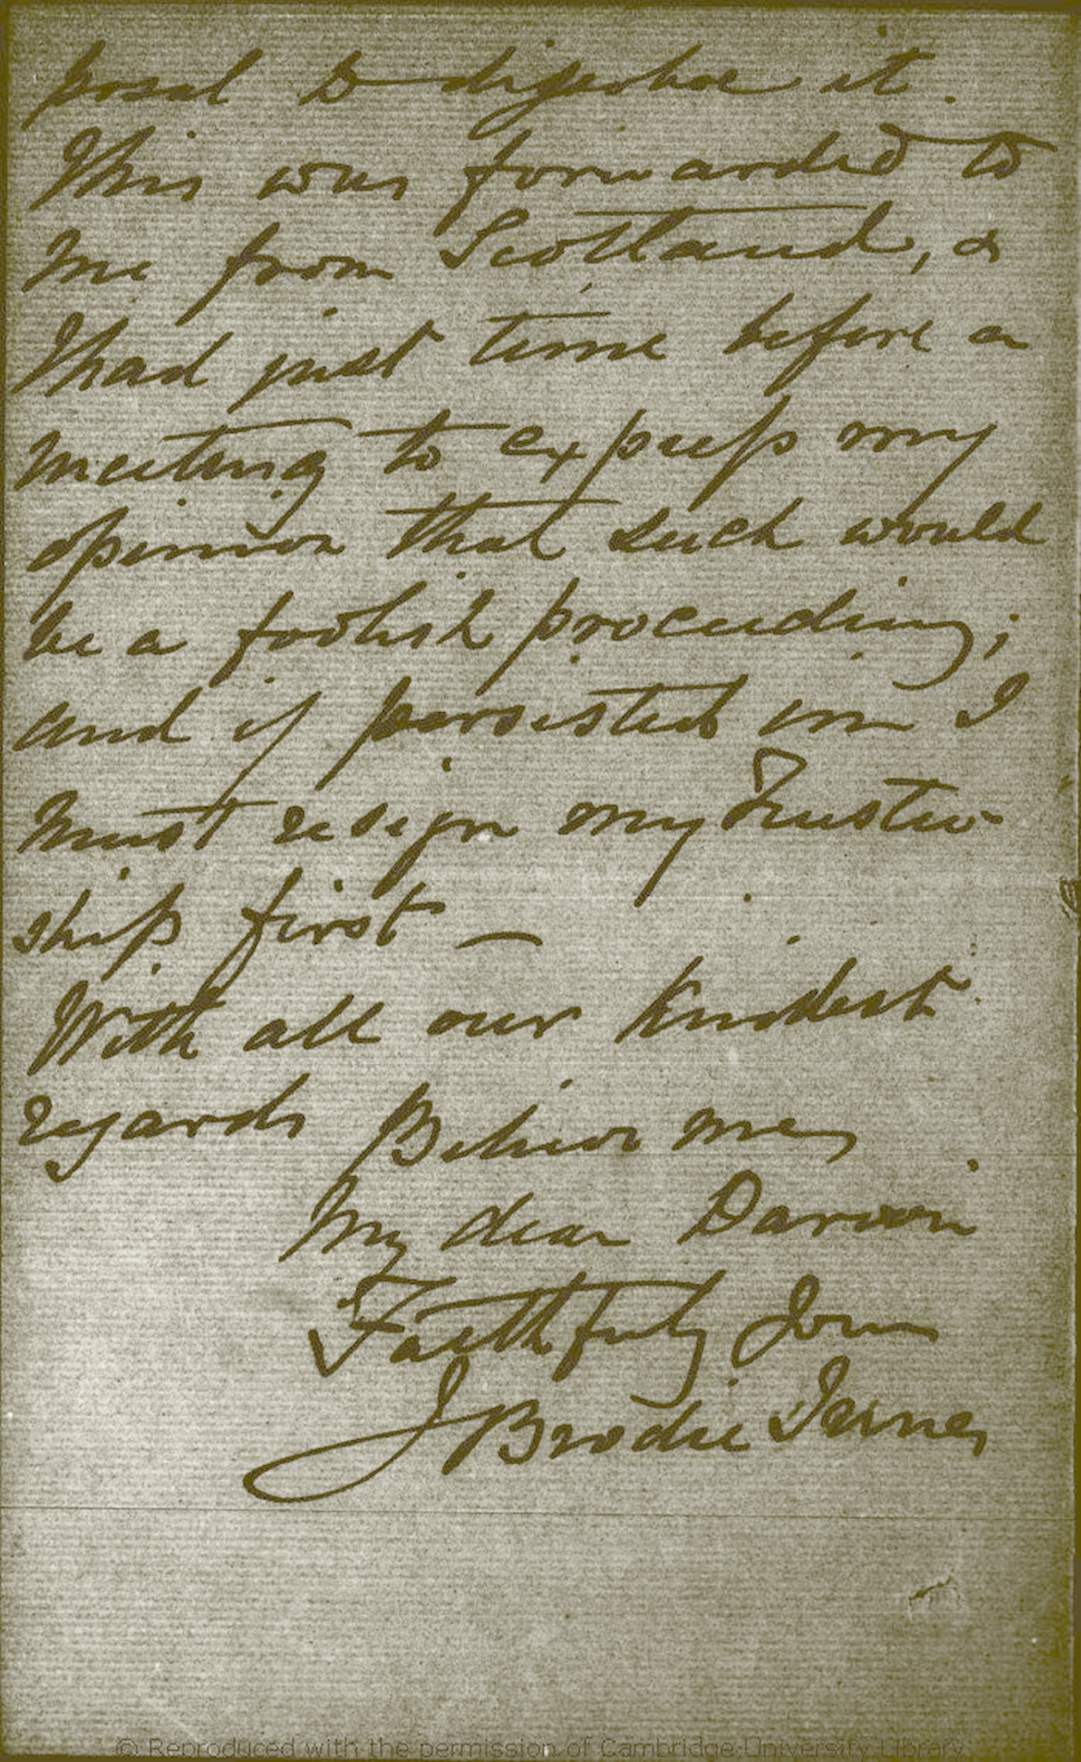 posal to digest it.
This was forwarded to
me from Scotland, &
I had just time before a
meeting to express my
opinion that such would
be a foolish proceeding;
and if persisted in I
must resign my Trustee
ship first —
With all our kindest
regards Believe me
My dear Darwin
Faithfully Yours
J Brodie Innes
© Reproduced with the permission of Cambridge University Library